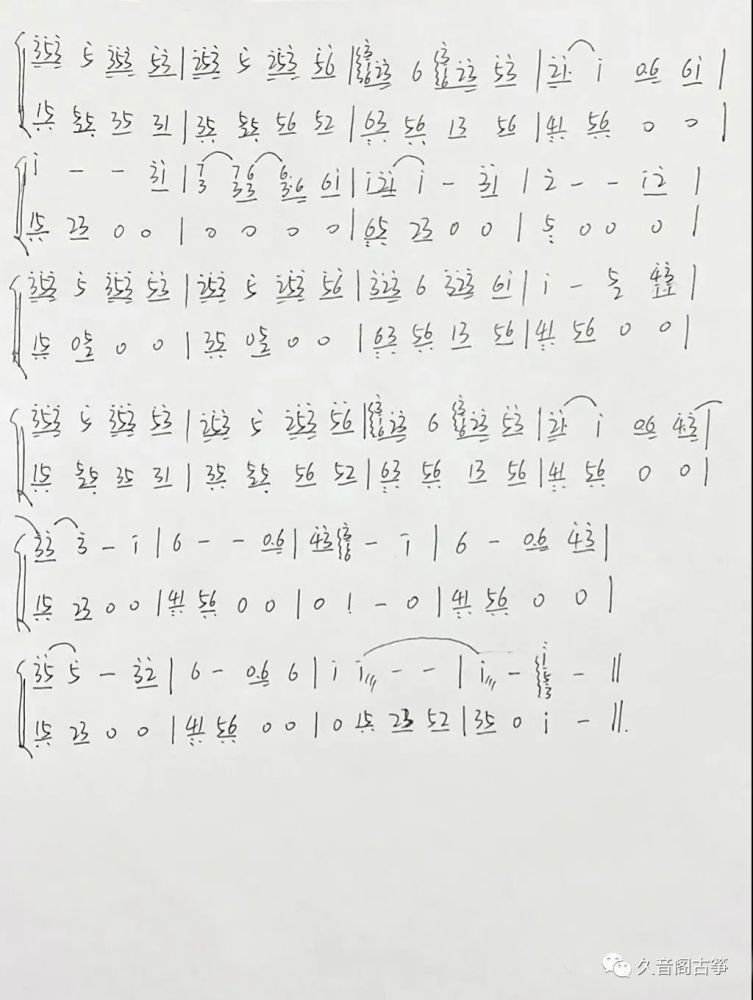 353 5 353 53 | 253 5 253 56 | 3623 6 3623 53 | 21· 1 0.6 61 |
15 55 35 31 | 35 55 56 52 | 63 56 13 56 | 41 56 0 0 |
1 - - 31 | 73 7 6 33 63·6 61 | 121 1 - 31 | 2 - - 12 |
15 23 0 0 | 0 0 0 0 | 65 23 0 0 | 5 0 0 0 |
353 5 353 53 | 253 5 253 56 | 323 6 323 61 | 1 - 5 43 |
15 05 0 0 | 35 05 0 0 | 63 56 13 56 | 41 56 0 0 |
353 5 353 53 | 253 5 253 56 | 3623 6 3623 53 | 21· 1 0.6 4.3 |
15 55 35 31 | 35 55 56 52 | 63 56 13 56 | 41 56 0 0 |
33 3 - 1 | 6 - - 0.6 | 43 36 - 1 | 6 - 0.6 43 |
15 23 0 0 | 41 56 0 0 | 0 1 - 0 | 41 56 0 0 |
35 5 - 32 | 6 - 0.6 6 | 1 1 - - | 1 - 153 - ||
15 23 0 0 | 41 56 0 0 | 0 15 23 52 | 35 0 1 - ||
久音阁古筝